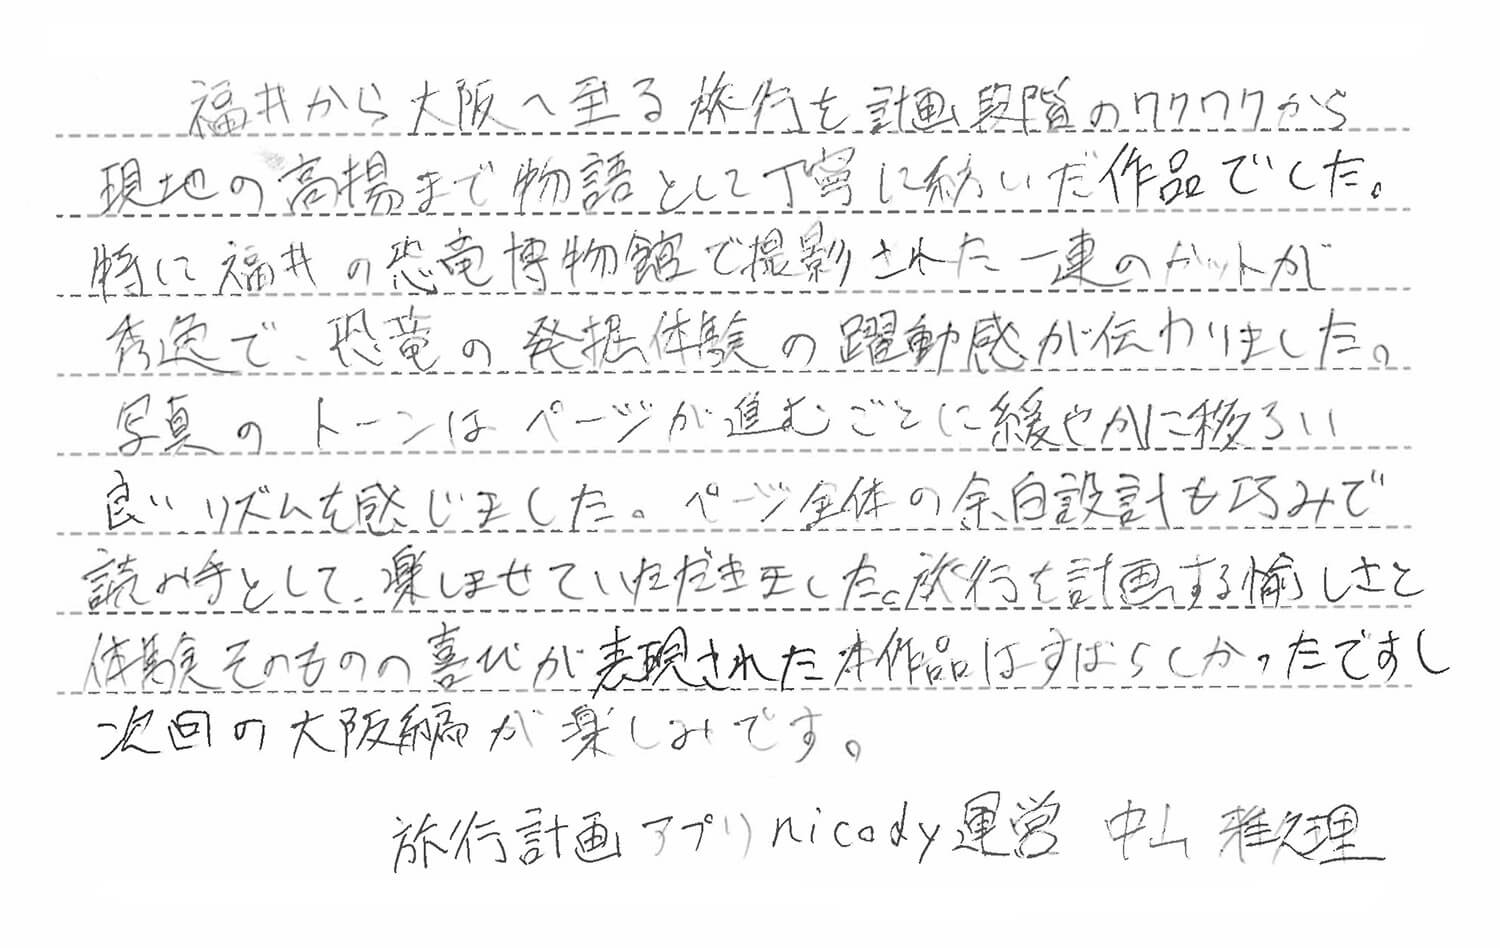 福井から大阪へ至る旅行を計画段階のワクワクから
現地の高揚まで物語として丁寧に紡いだ作品でした。
特に福井の恐竜博物館で撮影された一連のカットが
秀逸で、恐竜の発掘体験の躍動感が伝わりました。
写真のトーンはページが進むごとに緩やかに移ろい
良いリズムを感じました。ページ全体の余白設計も巧みで
読み手として、楽しませていただきました。旅行を計画する愉しさと
体験そのものの喜びが表現された本作品はすばらしかったですし
次回の大阪編が楽しみです。
旅行計画アプリnicody運営 中山 雅久理